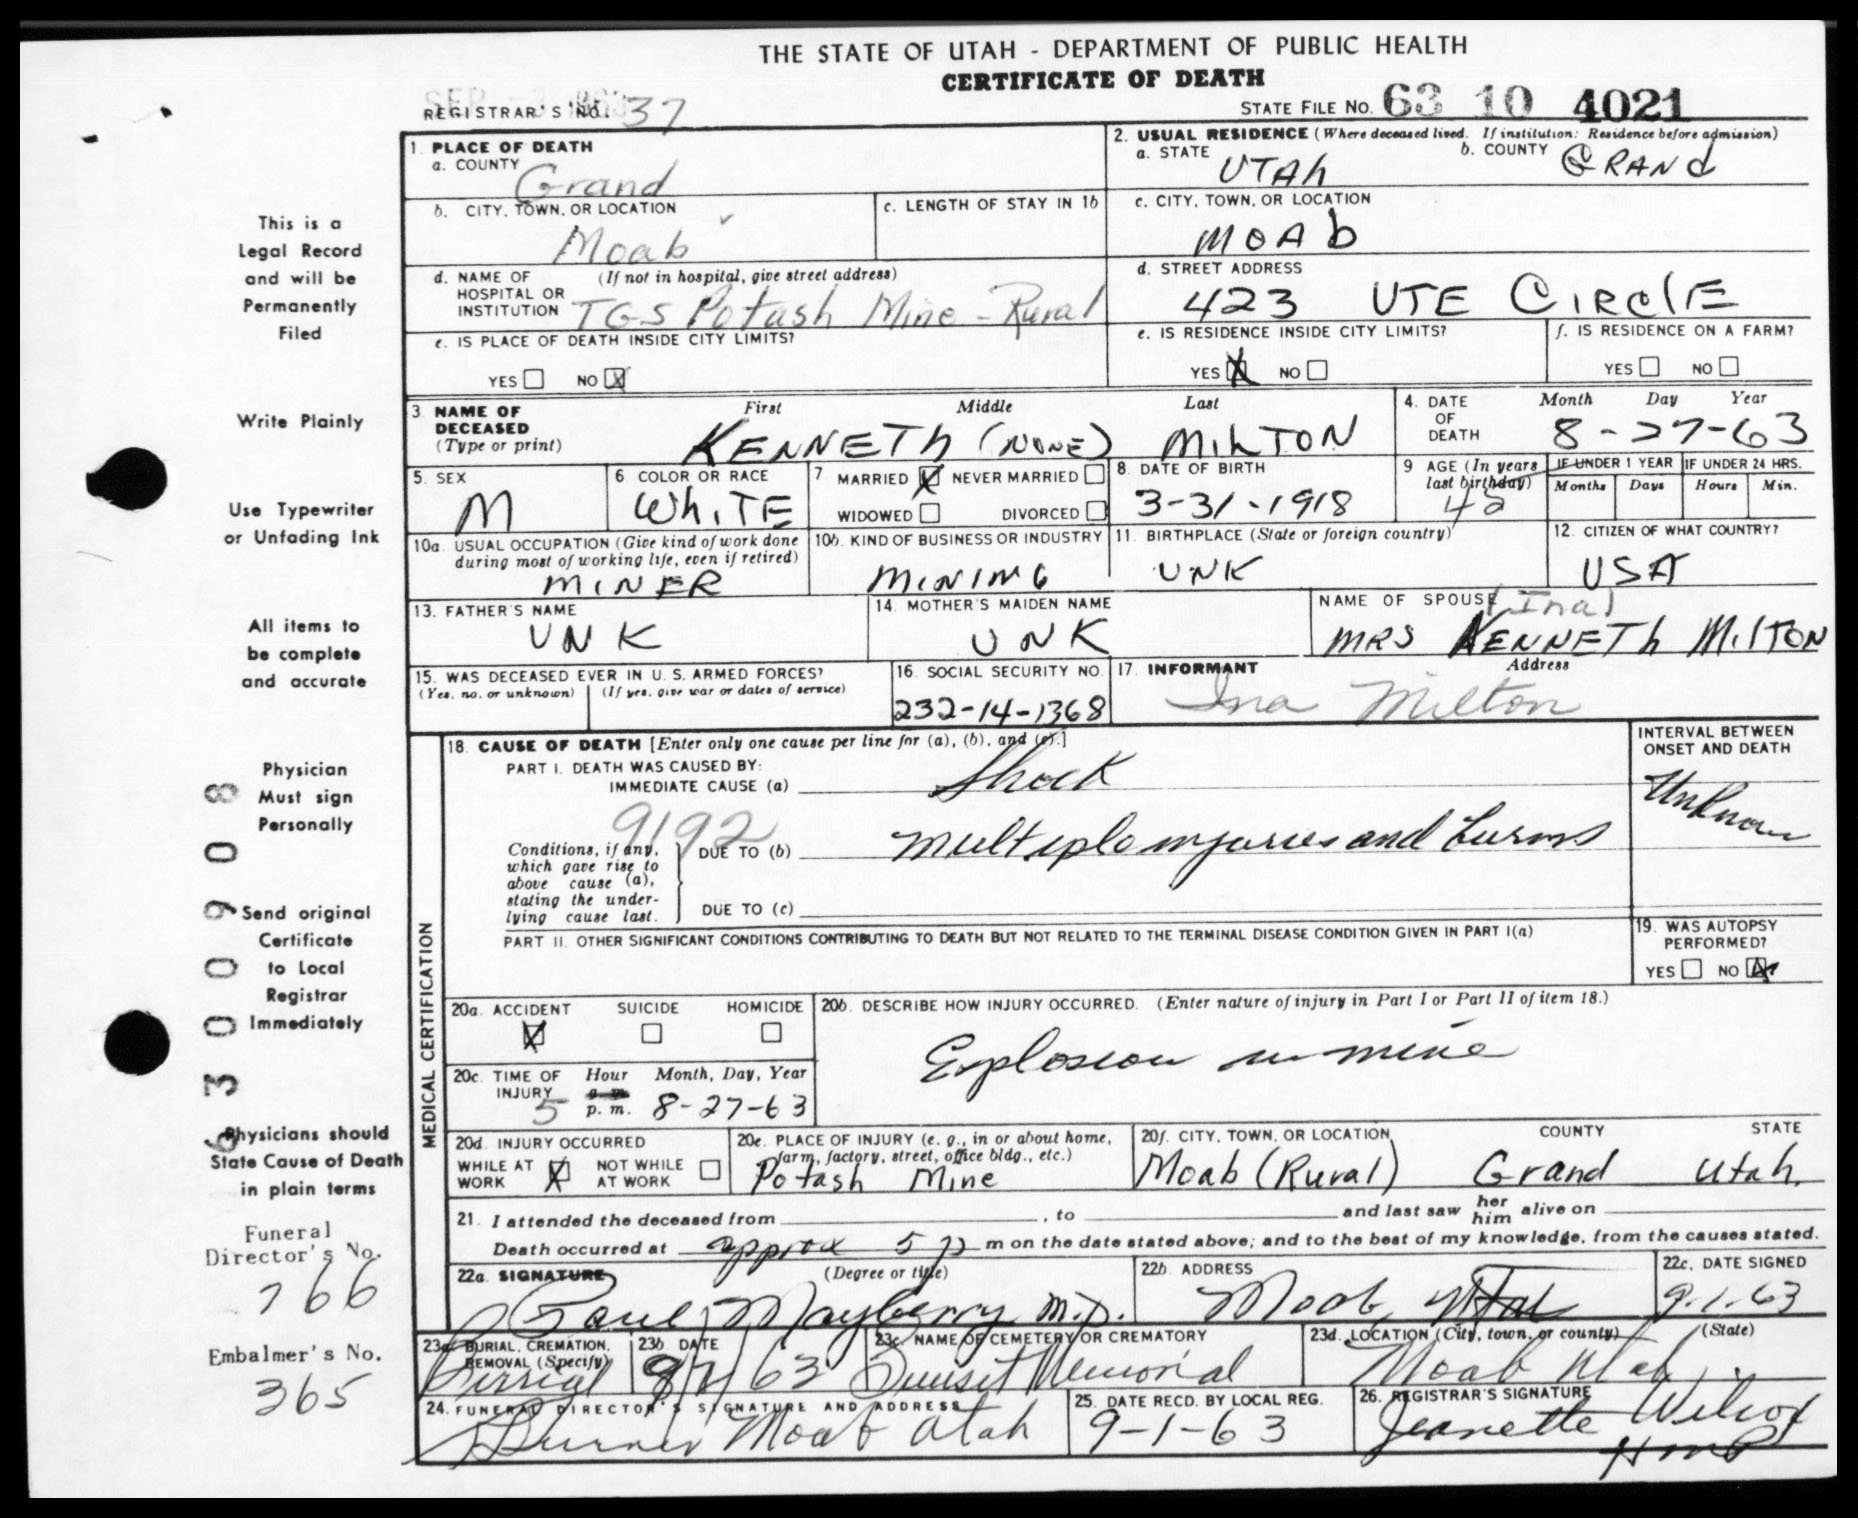 THE STATE OF UTAH - DEPARTMENT OF PUBLIC HEALTH
CERTIFICATE OF DEATH
REGISTRAR'S NO. 37
STATE FILE NO. 63 10 4021
This is a
Legal Record
and will be
Permanently
Filed
Write Plainly
Use Typewriter
or Unfading Ink
All items to
be complete
and accurate
Physician
Must sign
Personally
Send original
Certificate
to Local
Registrar
Immediately
Physicians should
State Cause of Death
in plain terms
Funeral
Director's No.
766
Embalmer's No.
365
63 00908
1. PLACE OF DEATH
a. COUNTY Grand
b. CITY, TOWN, OR LOCATION Moab
c. LENGTH OF STAY IN 1b
d. NAME OF HOSPITAL OR INSTITUTION (If not in hospital, give street address) TGS Potash Mine - Rural
e. IS PLACE OF DEATH INSIDE CITY LIMITS?
YES NO X
2. USUAL RESIDENCE (Where deceased lived. If institution: Residence before admission)
a. STATE UTAh b. COUNTY GRANd
c. CITY, TOWN, OR LOCATION MOAb
d. STREET ADDRESS 423 UTE CIRclE
e. IS RESIDENCE INSIDE CITY LIMITS?
YES X NO
f. IS RESIDENCE ON A FARM?
YES NO
3. NAME OF DECEASED (Type or print) First Middle Last
KENNETh (NONE) MILTON
4. DATE OF DEATH Month Day Year
8-27-63
5. SEX M
6. COLOR OR RACE WhiTE
7. MARRIED X NEVER MARRIED
WIDOWED DIVORCED
8. DATE OF BIRTH 3-31-1918
9 AGE (In years last birthday) 42
IF UNDER 1 YEAR Months Days
IF UNDER 24 HRS. Hours Min.
10a. USUAL OCCUPATION (Give kind of work done during most of working life, even if retired) MINER
10b. KIND OF BUSINESS OR INDUSTRY MINING
11. BIRTHPLACE (State or foreign country) UNK
12. CITIZEN OF WHAT COUNTRY? USA
13. FATHER'S NAME UNK
14. MOTHER'S MAIDEN NAME UNK
NAME OF SPOUSE (Ina)
MRS KENNETh MIlTON
15. WAS DECEASED EVER IN U.S. ARMED FORCES?
(Yes, no, or unknown) (If yes, give war or dates of service)
16. SOCIAL SECURITY NO. 232-14-1368
17. INFORMANT Address
Ina Milton
MEDICAL CERTIFICATION
18. CAUSE OF DEATH [Enter only one cause per line for (a), (b), and (c).]
PART I. DEATH WAS CAUSED BY:
IMMEDIATE CAUSE (a) Shock
9192
Conditions, if any, which gave rise to above cause (a), stating the underlying cause last.
DUE TO (b) Multiple injuries and burns
DUE TO (c)
INTERVAL BETWEEN ONSET AND DEATH
Unknown
PART II. OTHER SIGNIFICANT CONDITIONS CONTRIBUTING TO DEATH BUT NOT RELATED TO THE TERMINAL DISEASE CONDITION GIVEN IN PART I(a)
19. WAS AUTOPSY PERFORMED?
YES NO X
20a. ACCIDENT X SUICIDE HOMICIDE
20b. DESCRIBE HOW INJURY OCCURRED. (Enter nature of injury in Part I or Part II of item 18.)
Explosion in mine
20c. TIME OF INJURY Hour Month, Day, Year
5 a.m. p.m. 8-27-63
20d. INJURY OCCURRED
WHILE AT WORK X NOT WHILE AT WORK
20e. PLACE OF INJURY (e. g., in or about home, farm, factory, street, office bldg., etc.)
Potash Mine
20f. CITY, TOWN, OR LOCATION COUNTY STATE
Moab (Rural) Grand Utah.
21. I attended the deceased from , to and last saw her him alive on
Death occurred at approx 5 p m on the date stated above; and to the best of my knowledge, from the causes stated.
22a. SIGNATURE (Degree or title)
Paul Mayberry M.D.
22b. ADDRESS Moab, Utah
22c. DATE SIGNED 9-1-63
23a BURIAL, CREMATION, REMOVAL (Specify)
Burrial
23b. DATE
23c. NAME OF CEMETERY OR CREMATORY
Sunset Memorial
23d. LOCATION (City, town, or county) (State)
Moab Utah
24. FUNERAL DIRECTOR'S SIGNATURE AND ADDRESS
Moab Utah
25. DATE RECD. BY LOCAL REG.
9-1-63
26. REGISTRAR'S SIGNATURE
Jeanette Wilcox